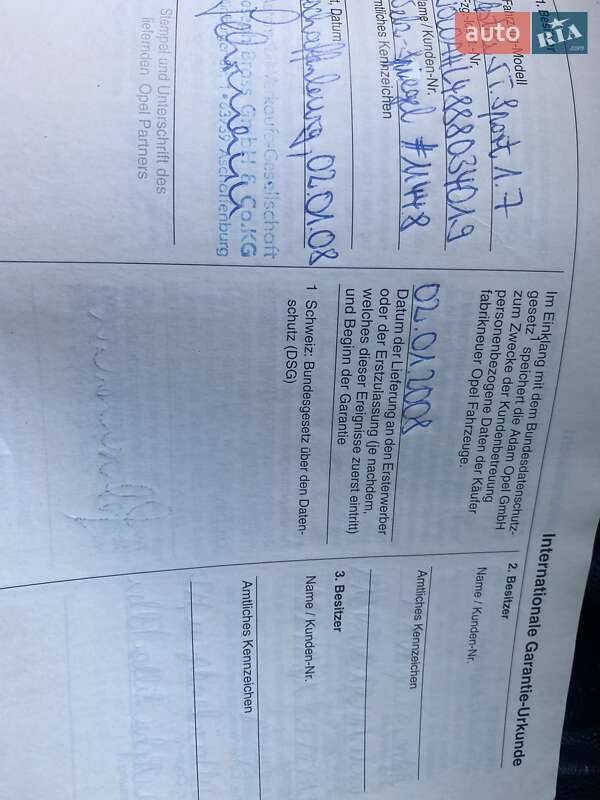 Internationale Garantie-Urkunde
1. Besitzer
Fahrzeug-Modell
Sport 1.7
Name / Kunden-Nr.
#11448
Amtliches Kennzeichen
Ort, Datum
Aschaffenburg, 02.01.08
Verkaufs-Gesellschaft
GmbH & Co. KG
63739 Aschaffenburg
Stempel und Unterschrift des
liefernden Opel Partners
Im Einklang mit dem Bundesdatenschutz-
gesetz¹ speichert die Adam Opel GmbH
zum Zwecke der Kundenbetreuung
personenbezogene Daten der Käufer
fabrikneuer Opel Fahrzeuge.
02.01.2008
Datum der Lieferung an den Ersterwerber
oder der Erstzulassung (je nachdem,
welches dieser Ereignisse zuerst eintritt)
und Beginn der Garantie
1 Schweiz: Bundesgesetz über den Daten-
schutz (DSG)
2. Besitzer
Name / Kunden-Nr.
Amtliches Kennzeichen
3. Besitzer
Name / Kunden-Nr.
Amtliches Kennzeichen
auto RIA.com